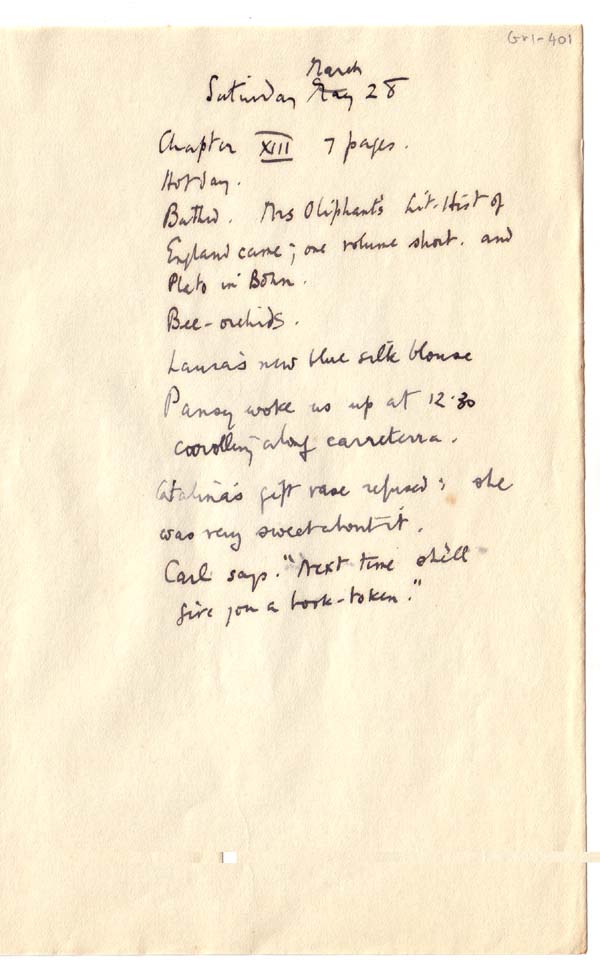 Gr1-401
March
Saturday May 28
Chapter XIII 7 pages.
Hot day.
Bathed. Mrs Oliphant's Lit. Hist of
England came; one volume short. and
Plato in Bohn.
Bee-orchids.
Laura's new blue silk blouse
Pansy woke us up at 12.30
coorolling along carreterra.
Catalina's gift vase refused; she
was very sweet about it.
Carl says. "Next time she'll
give you a book-token."